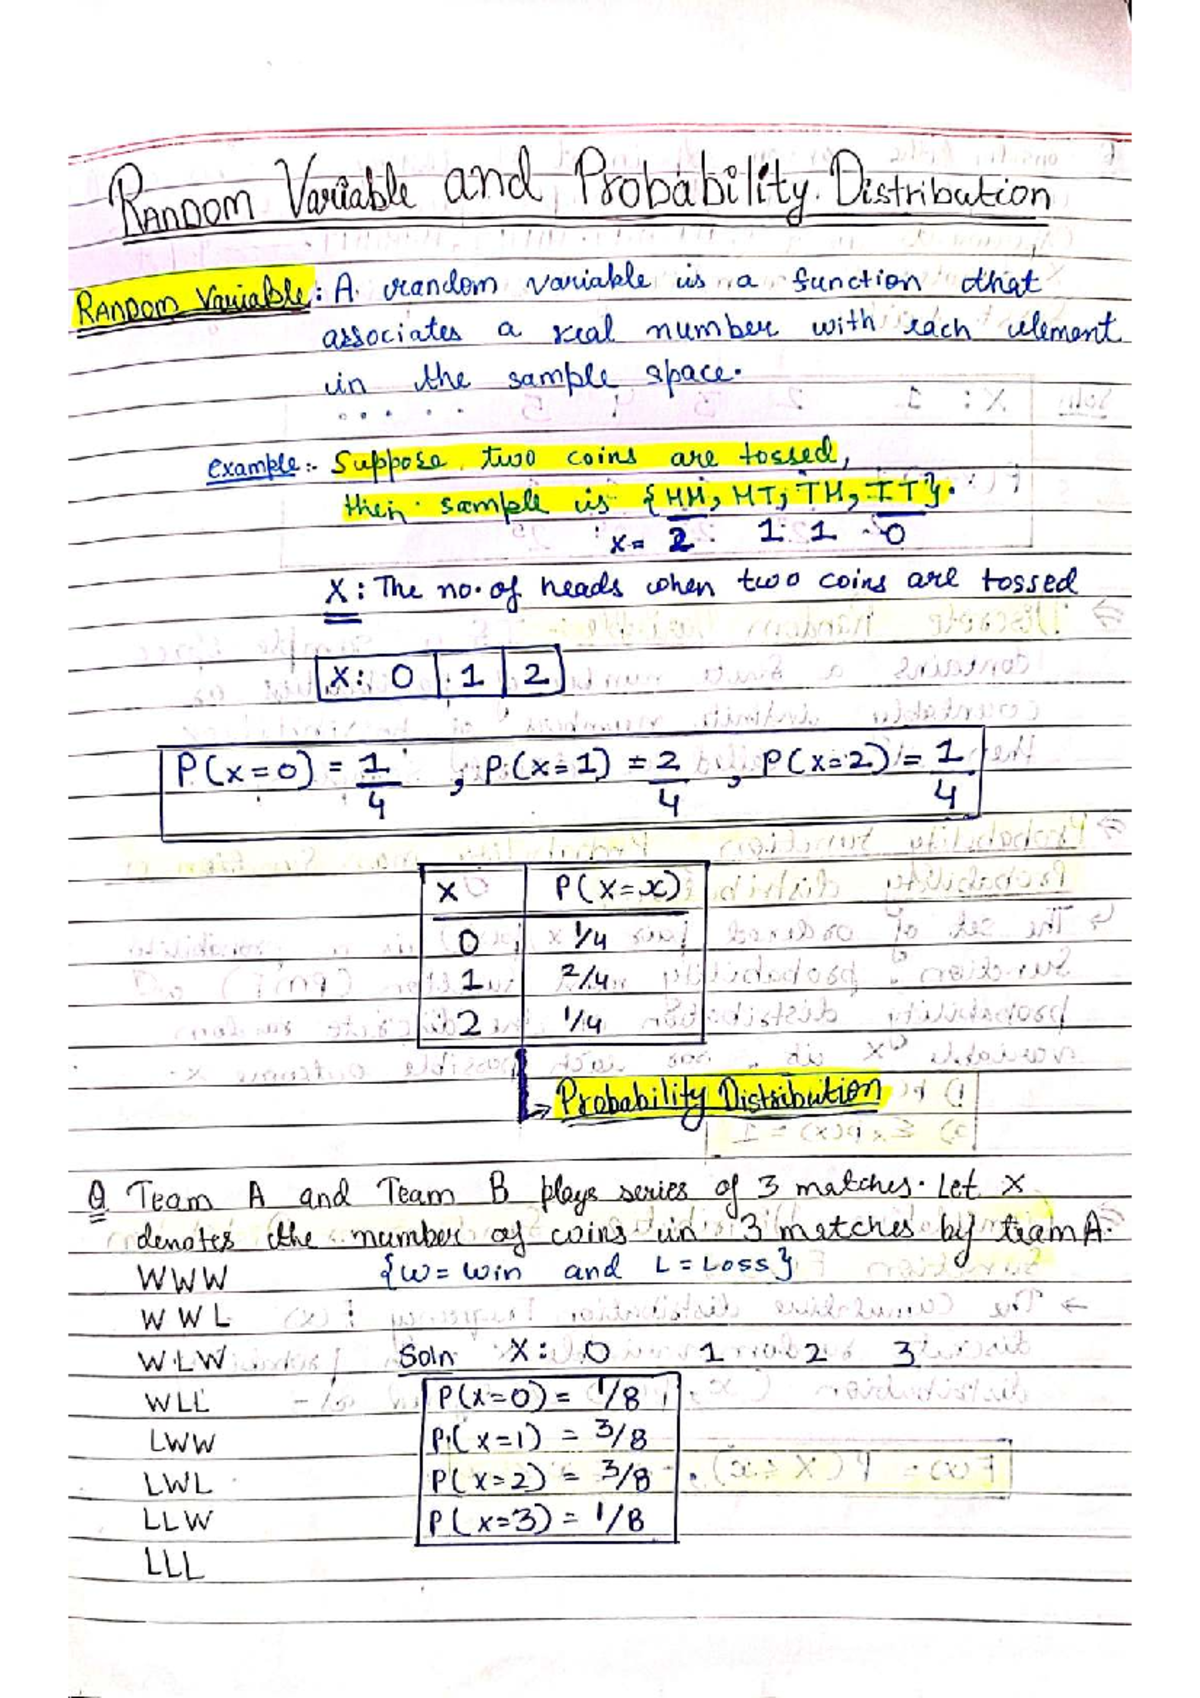 Random Variable and Probability Distribution
Random Variable: A random variable is a function that
associates a real number with each element
in the sample space.
example:- Suppose two coins are tossed,
then sample is {HH, HT, TH, TT}.
X= 2 1 1 0
X: The no. of heads when two coins are tossed
X: 0 1 2
P(x=0) = 1/4, P(x=1) = 2/4, P(x=2) = 1/4
X P(X=x)
0 1/4
1 2/4
2 1/4
Probability Distribution
Q Team A and Team B plays series of 3 matches. Let X
denotes the number of wins in 3 matches by team A.
WWW {W = Win and L = Loss}
WWL
WLW Soln X: 0 1 2 3
WLL P(x=0) = 1/8
LWW P(x=1) = 3/8
LWL P(x=2) = 3/8
LLW P(x=3) = 1/8
LLL